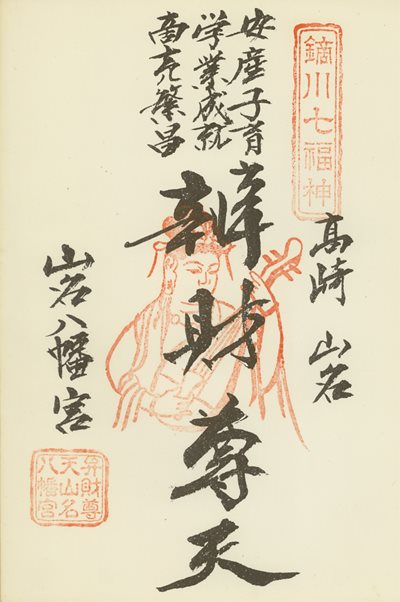 鏑川七福神
高崎 山名
安産子育
学業成就
商売繁昌
奉
辨財尊天
山名八幡宮
弁財尊
天山名
八幡宮